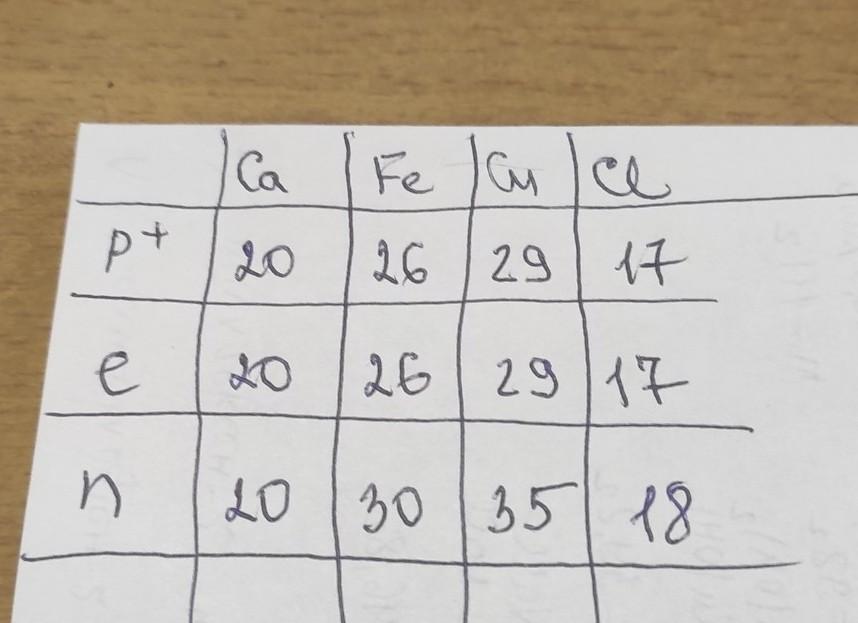 Ca Fe Cu Cl
p+ 20 26 29 17
e 20 26 29 17
n 20 30 35 18